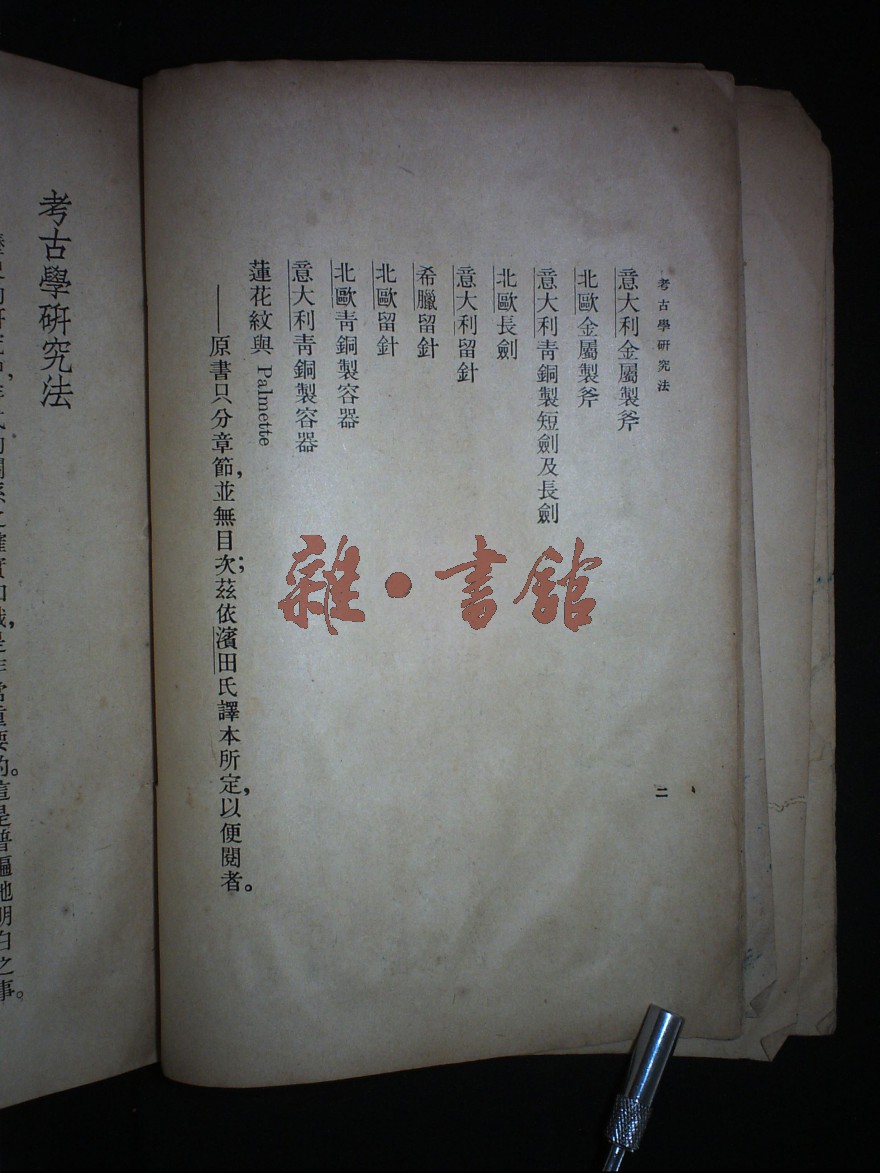 考古學研究法
意大利金屬製斧
北歐金屬製斧
意大利青銅製短劍及長劍
北歐長劍
意大利留針
希臘留針
北歐留針
北歐青銅製容器
意大利青銅製容器
蓮花紋與 Palmette
——原書只分章節，並無目次；茲依濱田氏譯本所定，以便閱者。
二
雜·書館
考古學研究法
是非常重要的。這是普遍地明白之事。